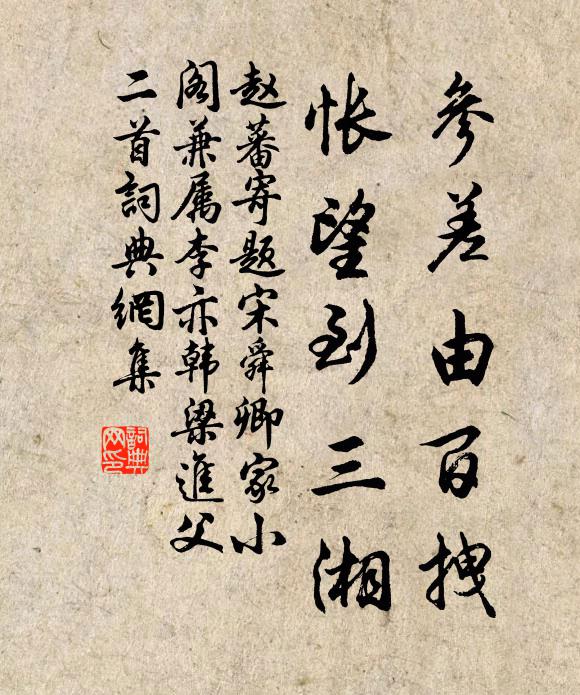 參差由百拽
悵望到三湘
赵蕃寄题宋舜卿家小
阁兼属李亦韩梁進父
二首詞典網集
詞典
网印